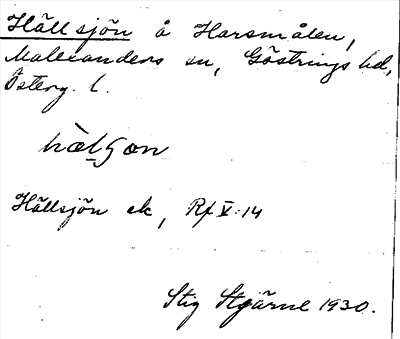 Hällsjön å Harsmålen,
Malexanders sn, Göstrings hd,
Österg. l.
hàlʃon
Hällsjön ek, Rf V:14
Stig Stjärne 1930.